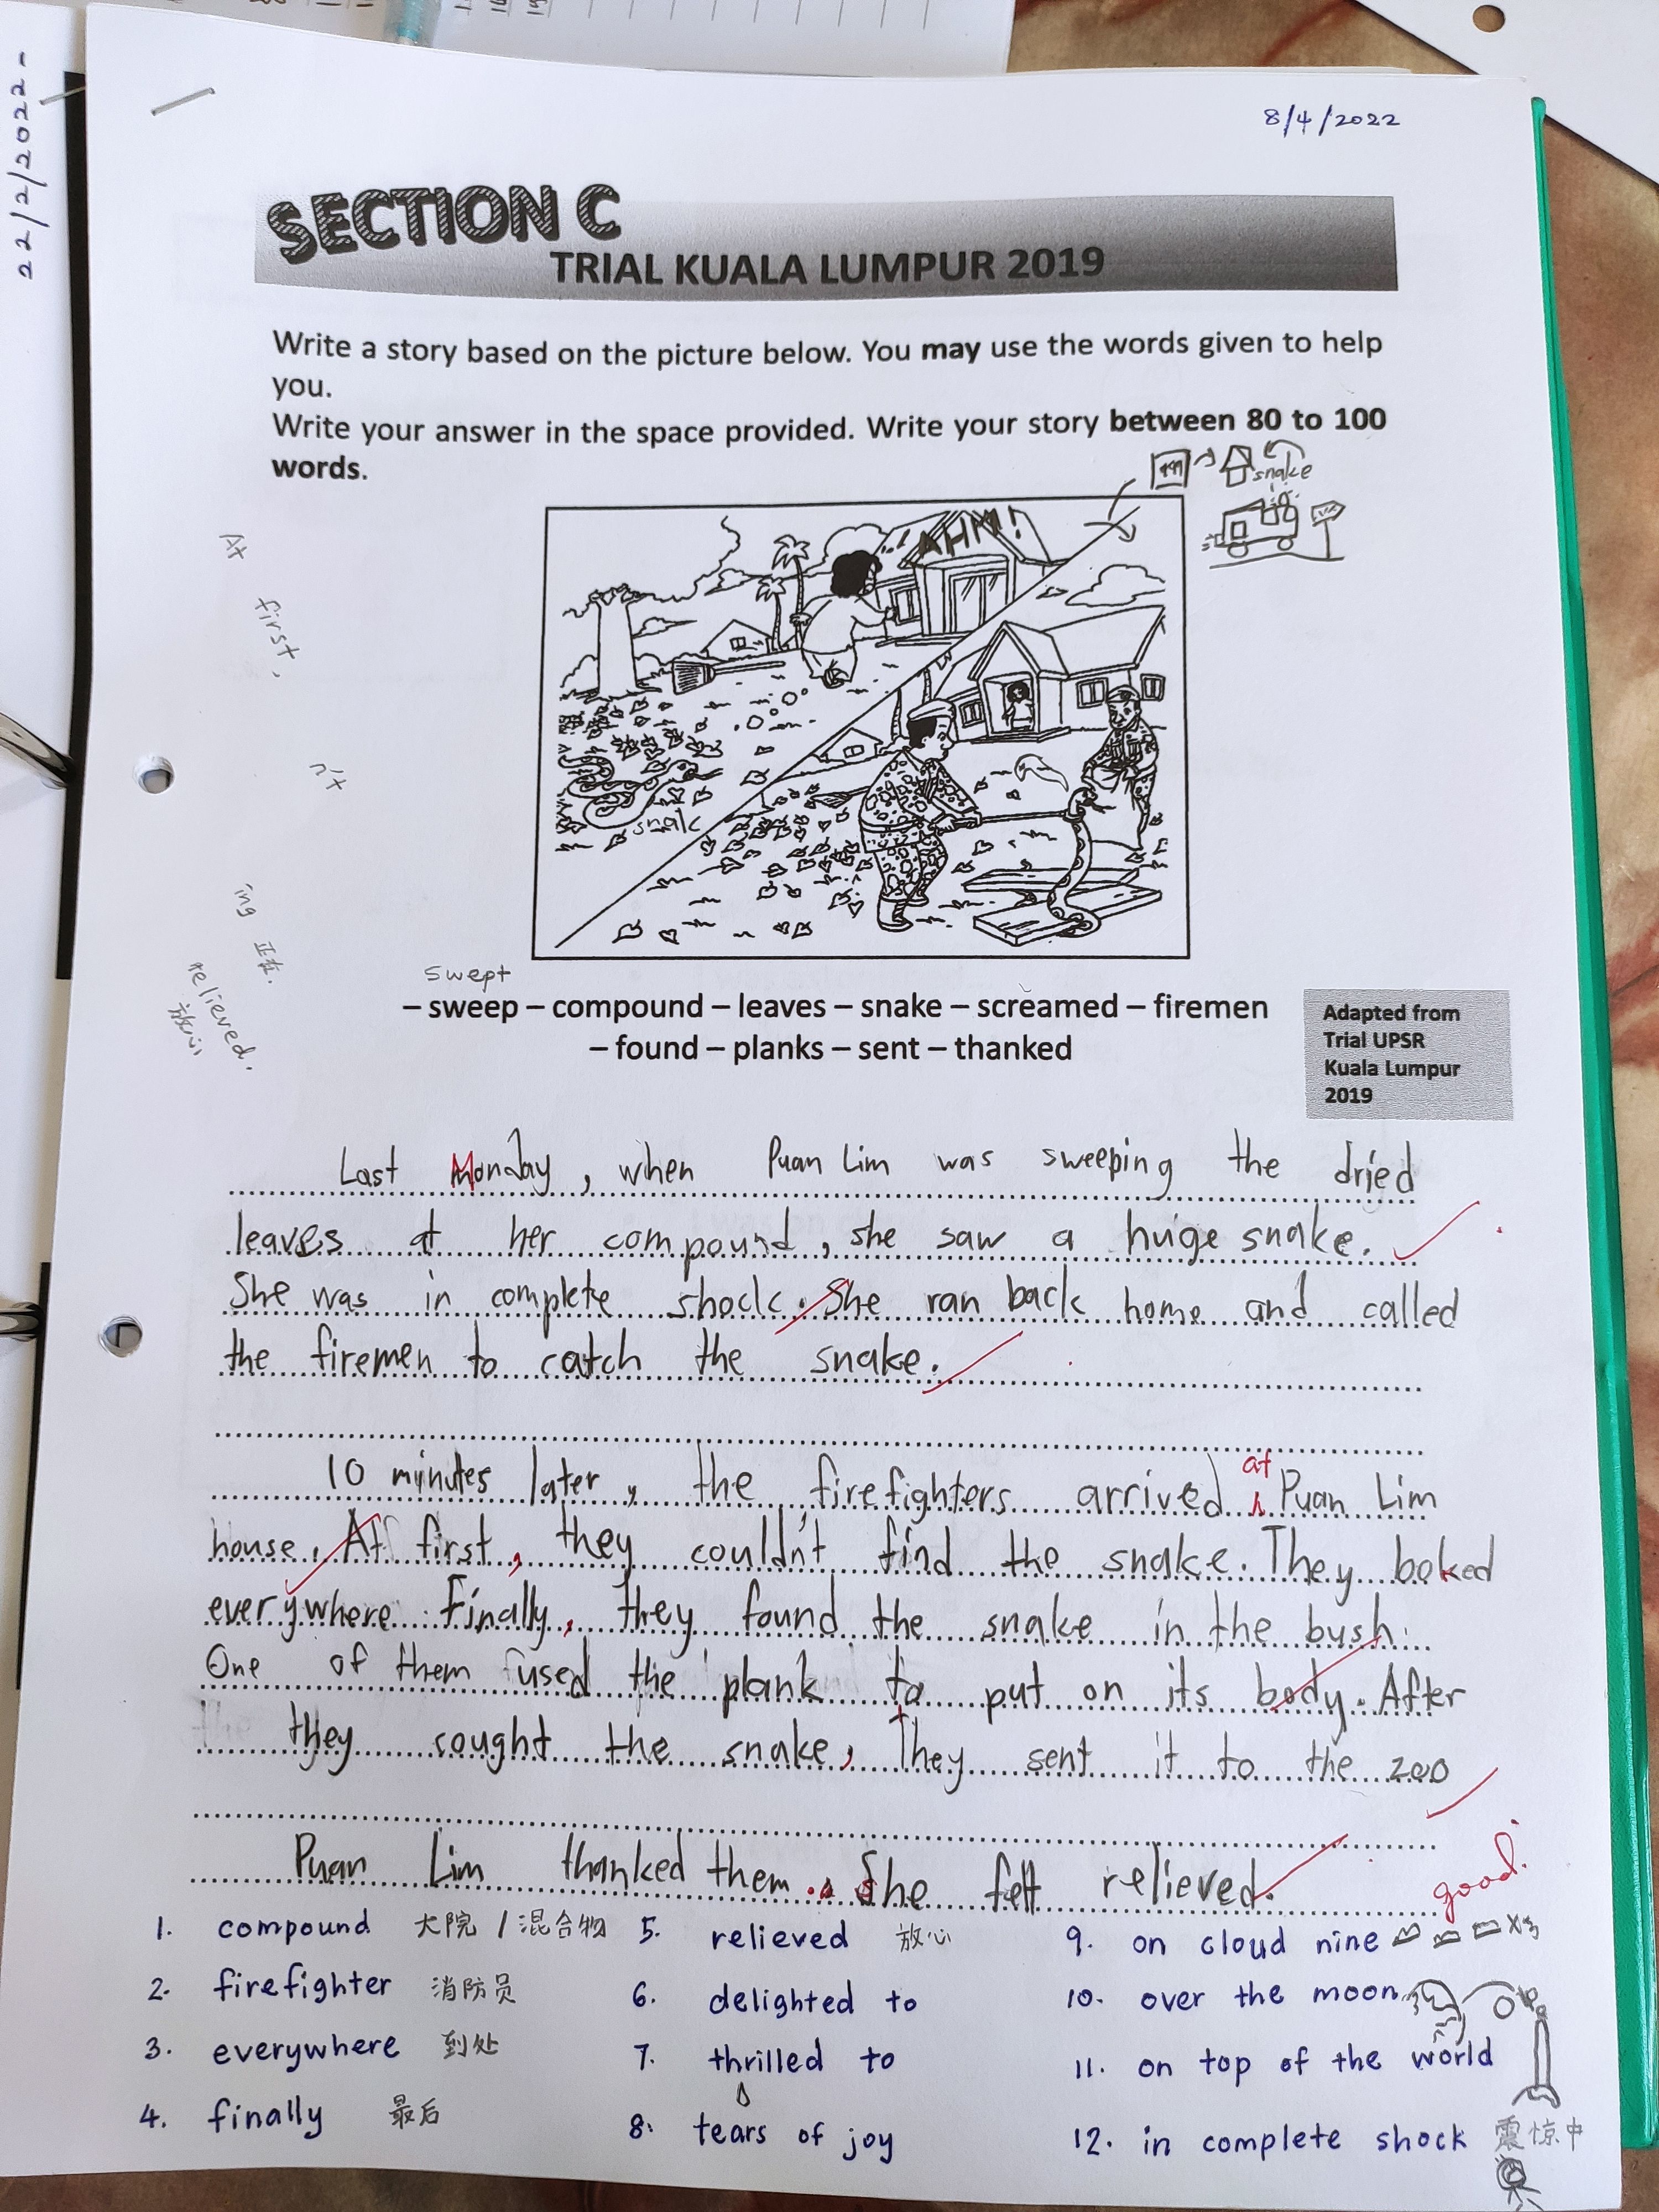 22/2/2022-
8/4/2022
SECTION C
TRIAL KUALA LUMPUR 2019
Write a story based on the picture below. You may use the words given to help
you.
Write your answer in the space provided. Write your story between 80 to 100
words.
snake
AHH!
At
first,
n't
snake
ing 正在.
relieved.
放心
swept
– sweep – compound – leaves – snake – screamed – firemen
– found – planks – sent – thanked
Adapted from
Trial UPSR
Kuala Lumpur
2019
Last Monday, when Puan Lim was sweeping the dried
leaves at her compound, she saw a huge snake.
She was in complete shock. She ran back home and called
the firemen to catch the snake.
at
10 minutes later, the firefighters arrived Puan Lim
house. At first, they couldn't find the snake. They looked
everywhere. Finally, they found the snake in the bush.
One of them used the plank to put on its body. After
they cought the snake, They sent it to the zoo
Puan Lim thanked them. She felt relieved.
good.
1. compound 大院 / 混合物
2. firefighter 消防员
3. everywhere 到处
4. finally 最后
5. relieved 放心
6. delighted to
7. thrilled to
8. tears of joy
9. on cloud nine
10. over the moon
11. on top of the world
12. in complete shock 震惊中